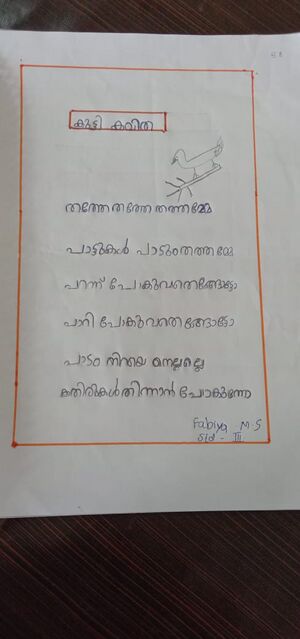 കുട്ടി കവിത
തത്തേ തത്തേ തത്തമ്മേ
പാട്ടുകൾ പാടും തത്തമ്മേ
പറന്ന് പോകുവതെങ്ങോട്ടോ
പാറി പോകുവതെങ്ങോട്ടോ
പാടം നിറയെ നെല്ലല്ലെ
കതിരുകൾ തിന്നാൻ പോകുന്നോ
Fabiya M.S
Std - III